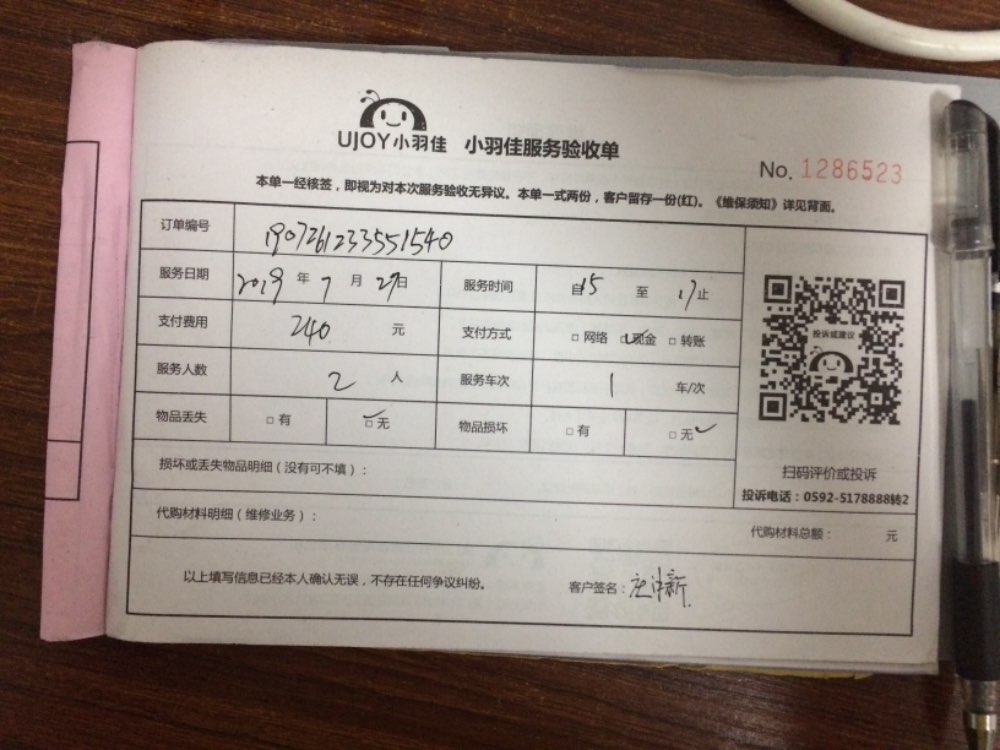 UJOY小羽佳 小羽佳服务验收单
No. 1286523
本单一经核签，即视为对本次服务验收无异议。本单一式两份，客户留存一份(红)。《维保须知》详见背面。
订单编号 1907261233551540
服务日期 2019 年 7 月 27日 服务时间 自15 至 17止
支付费用 240 元 支付方式 □ 网络 ☑现金 □ 转账
服务人数 2 人 服务车次 1 车/次
物品丢失 □ 有 ☑ 无 物品损坏 □ 有 □ 无✓
投诉或建议
扫码评价或投诉
投诉电话：0592-5178888转2
损坏或丢失物品明细（没有可不填）：
代购材料明细（维修业务）： 代购材料总额： 元
以上填写信息已经本人确认无误，不存在任何争议纠纷。 客户签名：